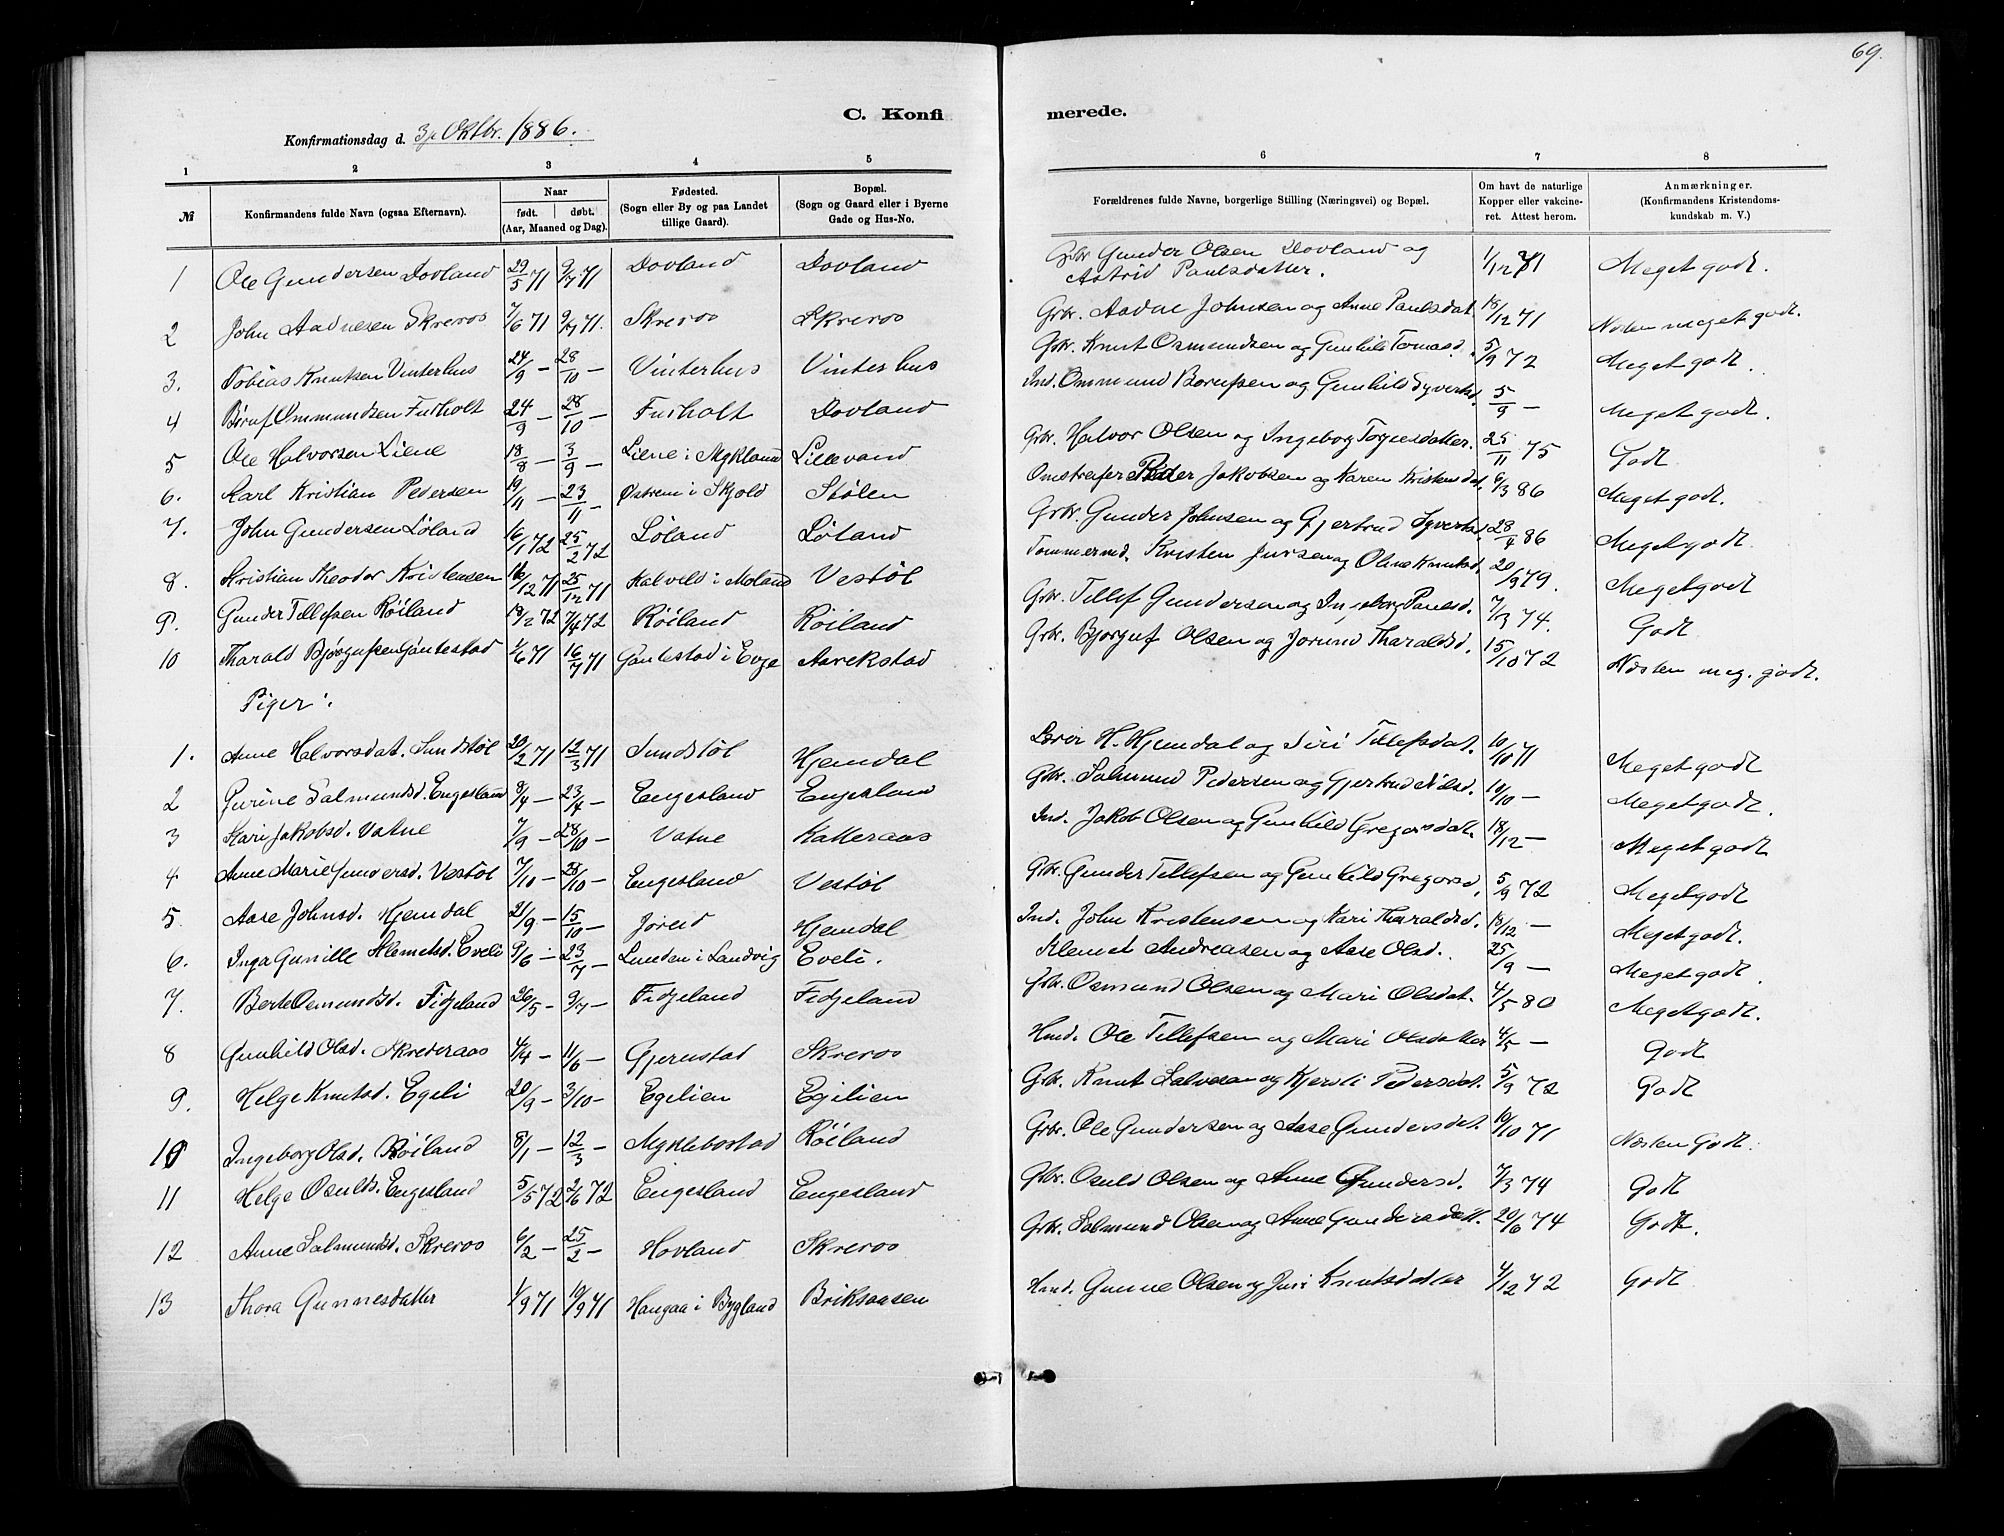 69.
C. Konfi merede.
Konfirmationsdag d. 3je Oktbr. 1886.
1 2 3 4 5 6 7 8
№ Konfirmandens fulde Navn (ogsaa Efternavn). Naar født. døbt. (Aar, Maaned og Dag). Fødested. (Sogn eller By og paa Landet tillige Gaard). Bopæl. (Sogn og Gaard eller i Byerne Gade og Hus-No. Forældrenes fulde Navne, borgerlige Stilling (Næringsvei) og Bopæl. Om havt de naturlige Kopper eller vakcineret. Attest herom. Anmærkninger. (Konfirmandens Kristendomskundskab m. V.)
1 Ole Gundersen Dovland 29/5 71 9/7 71 Dovland Dovland Gbr. Gunder Olsen Dovland og Astrid Paulsdatter. 1/12 71 Meget godt.
2 John Aadnesen Skreros 7/6 71 9/7 71. Skreros Skreros Gbr. Aadne Johnsen og Anne Paulsdat. 18/12 71 Næsten meget godt.
3. Tobias Knutsen Vinterhus 24/9 – 28/10 – Vinterhus Vinterhus Gbr. Knut Osmundsen og Gunhild Tomasd. 5/9 72 Meget godt.
4 Børuf Ommundsen Furholt 24/9 – 28/10 – Furholt Dovland Ind. Ommund Børufsen og Gunhild Syvertsd. 5/9 – Meget godt.
5 Ole Halvorsen Liene 18/8 – 3/9 – Liene i Mykland Lillevand Gbr. Halvor Olsen og Ingeborg Tognesdatter. 25/11 75 Godt
6. Karl Kristian Pedersen 19/11 – 23/11 – Østrem i Skjold Stølen Omstreifer Peder Jakobsen og Karen Kristensdat. 6/3 86 Meget godt.
7. John Gundersen Løland 16/1 72 25/2 72 Løland Løland Gbr. Gunder Johnsen og Gjertrud Syvertsd. 28/4 86 Meget godt.
8. Kristian Theodor Kristensen 16/12 71 25/12 71 Kalveld i Moland Vestøl Tømmermd. Kristen Jursen og Oline Knutsd. 20/9 79. Meget godt
9. Gunder Tellefsen Røiland 18/2 72 7/4 72 Røiland Røiland Gbr. Tellef Gundersen og Ingeborg Paulsd. 7/3 74. Godt
10 Tharald Bjørgufsen Gautestad 1/6 71 16/7 71 Gautestad i Evje Aarekstad Gbr. Bjørguf Olsen og Jorund Tharaldsd. 15/10 72 Næsten meg. godt.
Piger:
1. Anne Halvorsdat. Sundstøl 20/2 71 12/3 71 Sundstøl Hjemdal Lærer H. Hjemdal og Siri Tellefsdat. 10/10 71 Meget godt
2 Gurine Salmundsd. Engesland 8/4 – 23/4 – Engesland Engesland Gbr. Salmund Pedersen og Gjertrud Nilsd. 10/10 – Meget godt.
3 Kari Jakobsd. Vatne 7/9 – 28/10 – Vatne Katteraas Ind. Jakob Olsen og Gunhild Gregorsdat. 18/12 – Meget godt
4 Anne Marie Gundersd. Vestøl 7/10 – 28/10 – Engesland Vestøl Gbr. Gunder Tellefsen og Gunhild Gregorsd. 5/9 72 Meget godt
5 Aase Johnsd. Hjemdal 21/9 – 15/10 – Jorud Hjemdal Ind. John Kristensen og Kari Tharaldsd. 18/12 – Meget godt.
6. Inga Gunille Klemetsd. Eveli 9/6 – 23/7 – Lunden i Landvig Eveli. Klemet Andreasen og Aase Olsd. 25/9 – Meget godt
7. Berte Osmundsd. Fidjeland 26/5 – 9/7 – Fidjeland Fidjeland Gbr. Osmund Olsen og Mari Olsdat. 4/5 80 Meget godt.
8 Gunhild Olsd. Skrederaas 4/4 – 11/6 – Gjerustad Skreros Hmd. Ole Tellefsen og Mari Olsdatter 4/5 – Godt
9. Helge Knutsd. Egeli 20/9 – 3/10 – Egelien Egilien Gbr. Knut Salvesen og Kjersti Pedersdat. 5/9 72 Godt
10 Ingeborg Olsd. Røiland 8/1 – 12/3 – Myklebostad Røiland Gbr. Ole Gundersen og Aase Gundersdat. 10/10 71 Næsten Godt.
11 Helge Osulds. Engesland 5/5 72 2/6 72 Engesland Engesland Gbr. Osuld Olsen og Anne Gundersd. 7/3 74 Godt
12 Anne Salmundsd. Skreros 6/2 – 25/2 – Hovland Skreros Gbr. Salmund Olsen og Anne Gundersdatt. 20/6 74 Godt.
13 Thora Gunnesdatter 1/9 71 10/9 71 Haugaa i Bygland Briksaasen Hmd. Gunne Olsen og Juri Knutsdatter 4/12 72 Godt